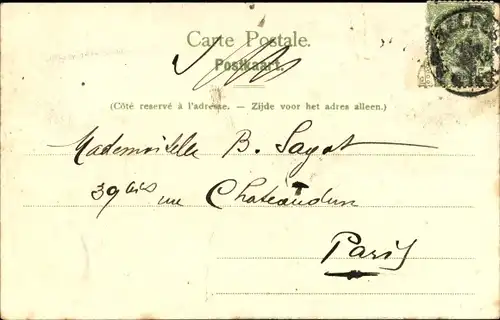 Carte Postale.
Postkaart.
(Côté reservé à l'adresse. – Zijde voor het adres alleen.)
Mademoiselle B. Sagot
39 bis rue Chateaudun
Paris